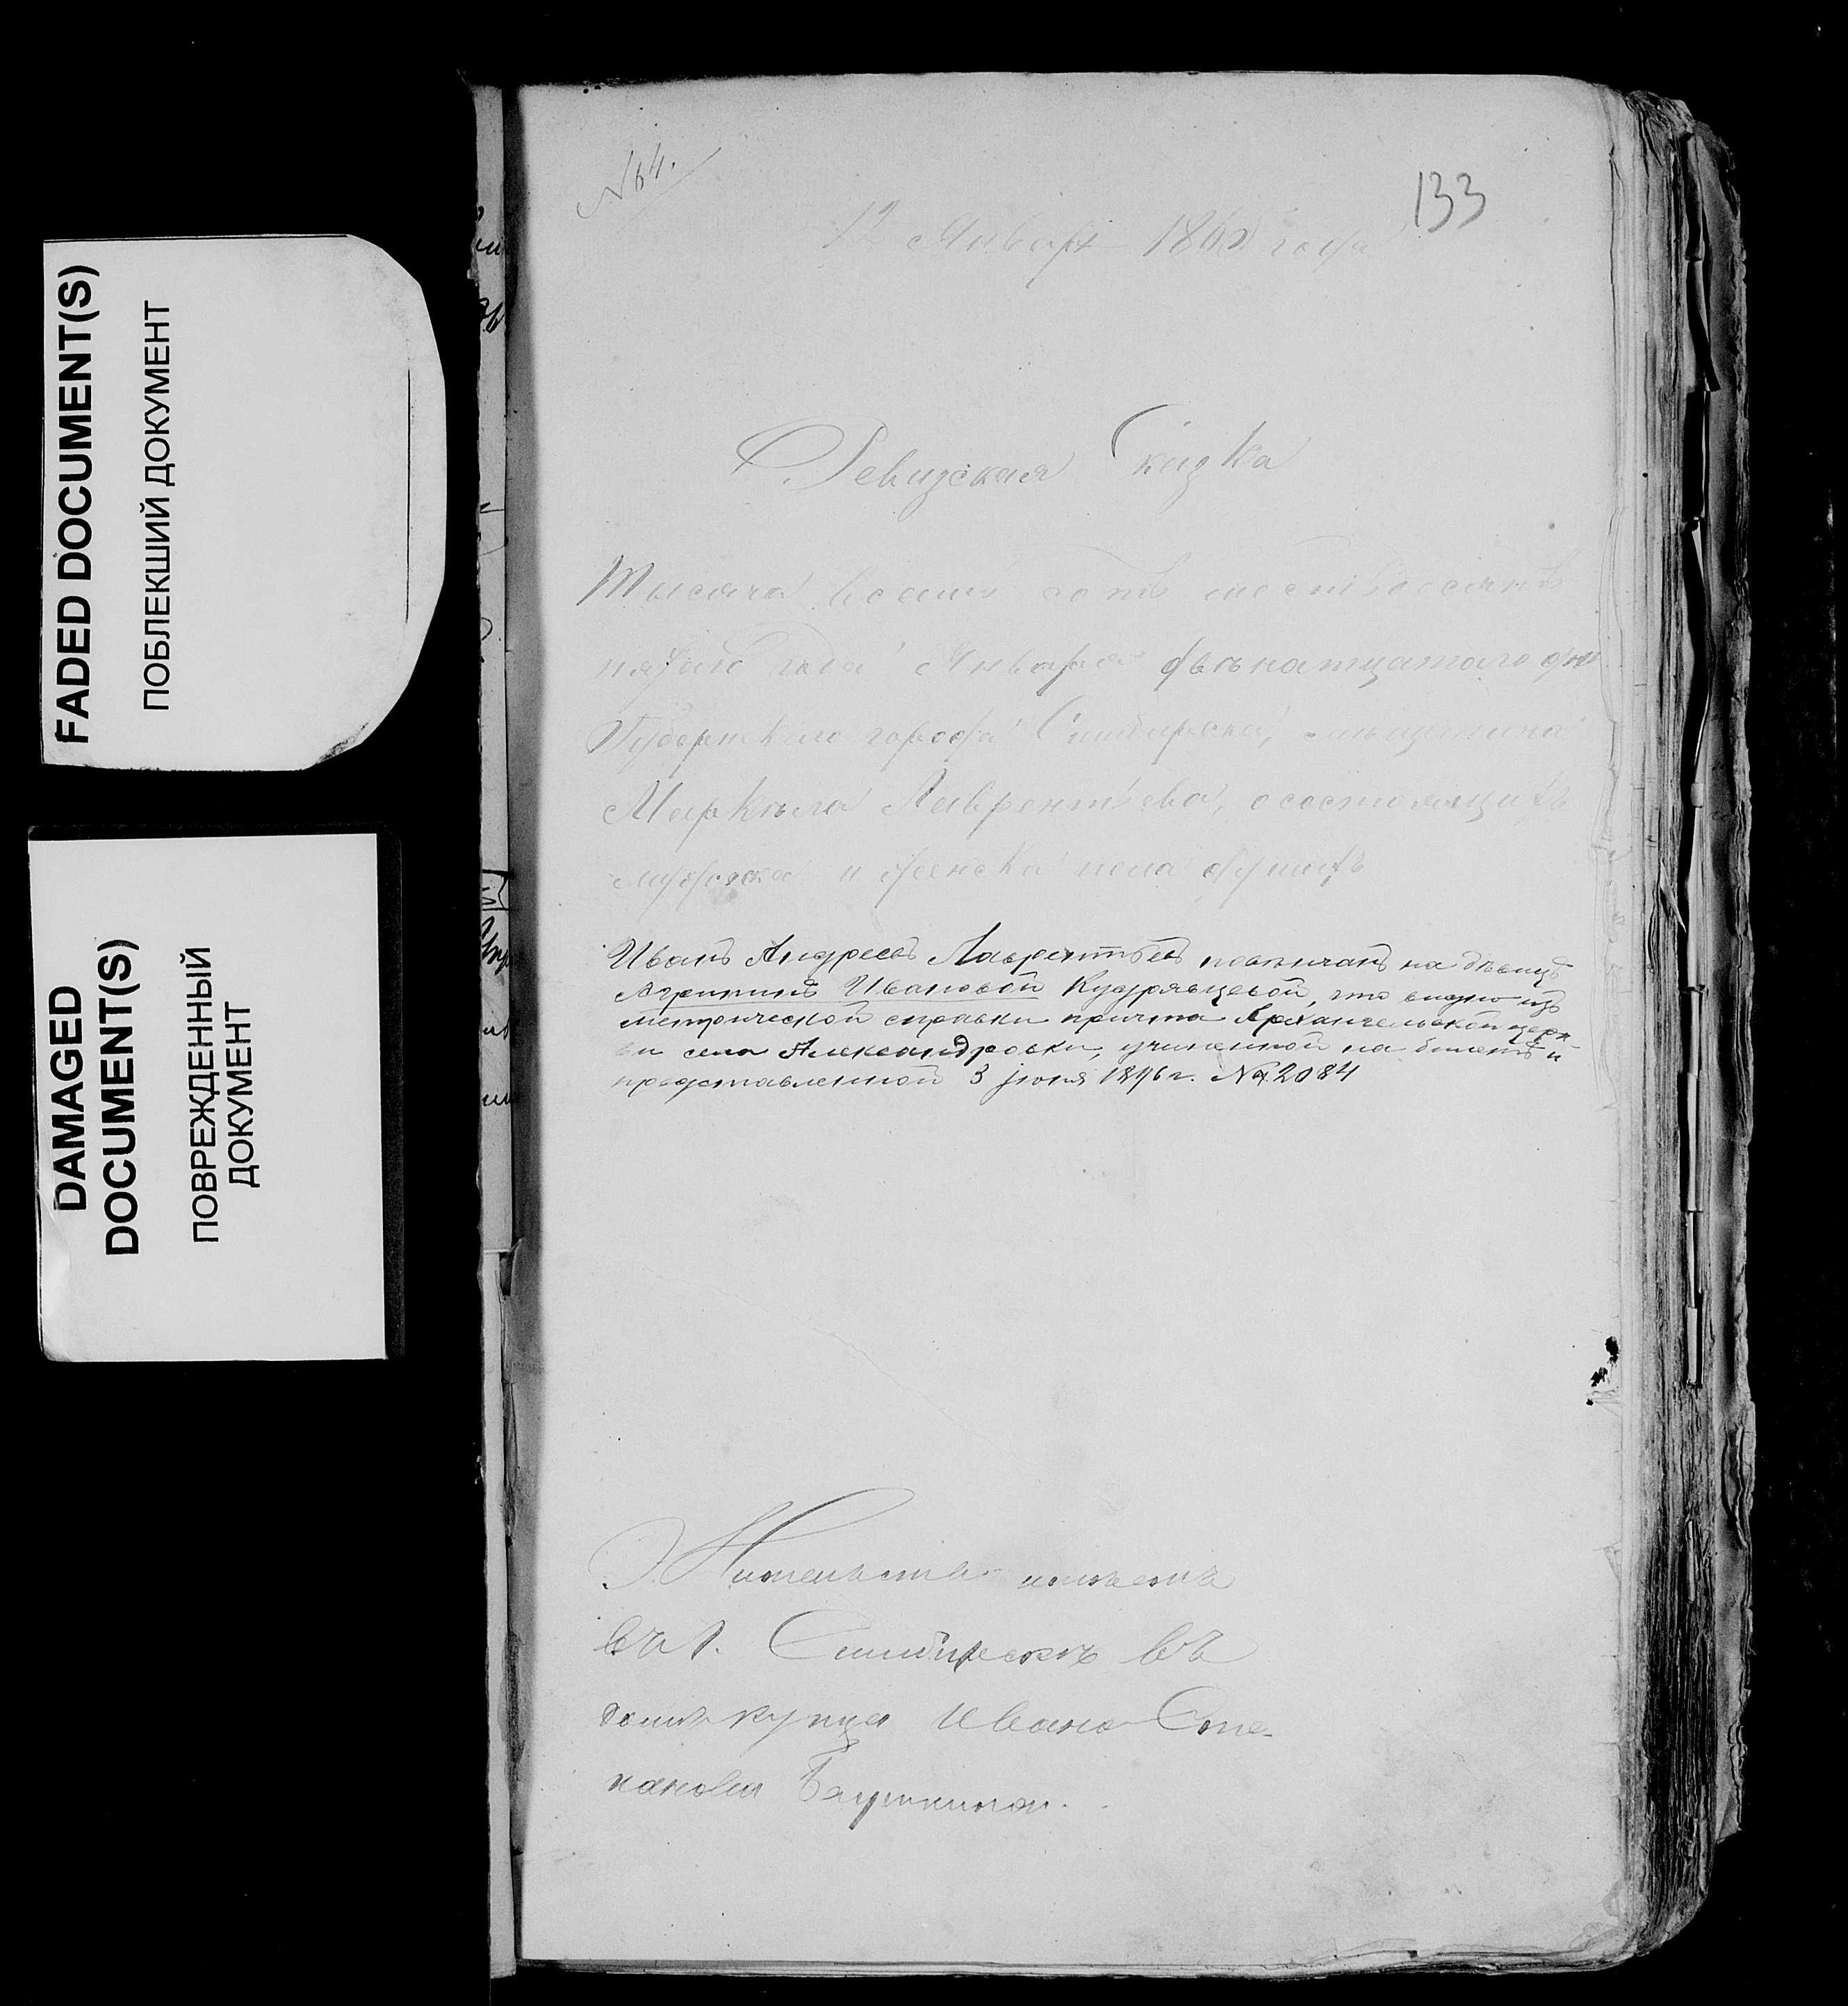 FADED DOCUMENT(S)
ПОБЛЕКШИЙ ДОКУМЕНТ
DAMAGED
DOCUMENT(S)
ПОВРЕЖДЕННЫЙ
ДОКУМЕНТ
N 64.
133
12 Января 1865 года
Ревизская Сказка
Тысяча восемь сотъ шестьдесятъ
пятаго года Января двѣнатцатаго дня
Губернскаго города Симбирска, мѣщанина
Маркела Лаврентьева, о состоящихъ
мужска и женска пола душахъ
Иванъ Андреевъ Лаврентьевъ повѣнчанъ на дѣвицѣ
Агрипинѣ Ивановой Кудрявцевой, что видно изъ
метрической справки причта Архангельской церк-
ви села Александровки, учиненной на билетѣ и
представленной 3 іюня 1896 г. № 2084
Жительство имѣетъ
въ г. Симбирскѣ въ
домѣ купца Ивана Сте-
панова